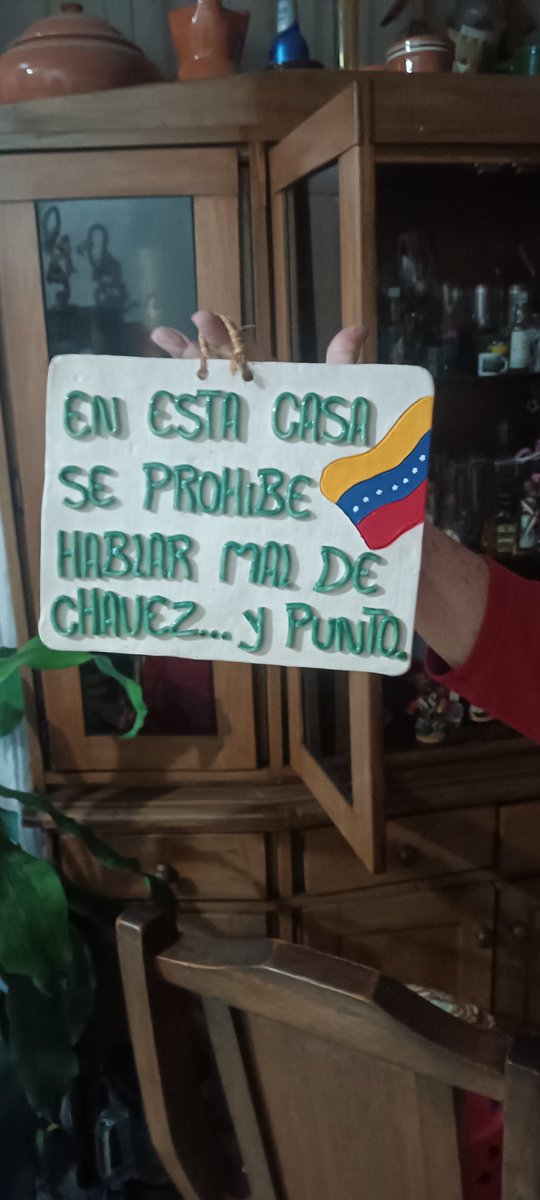 EN ESTA CASA
SE PROHIBE
HABLAR MAL DE
CHAVEZ... y PUNTO.